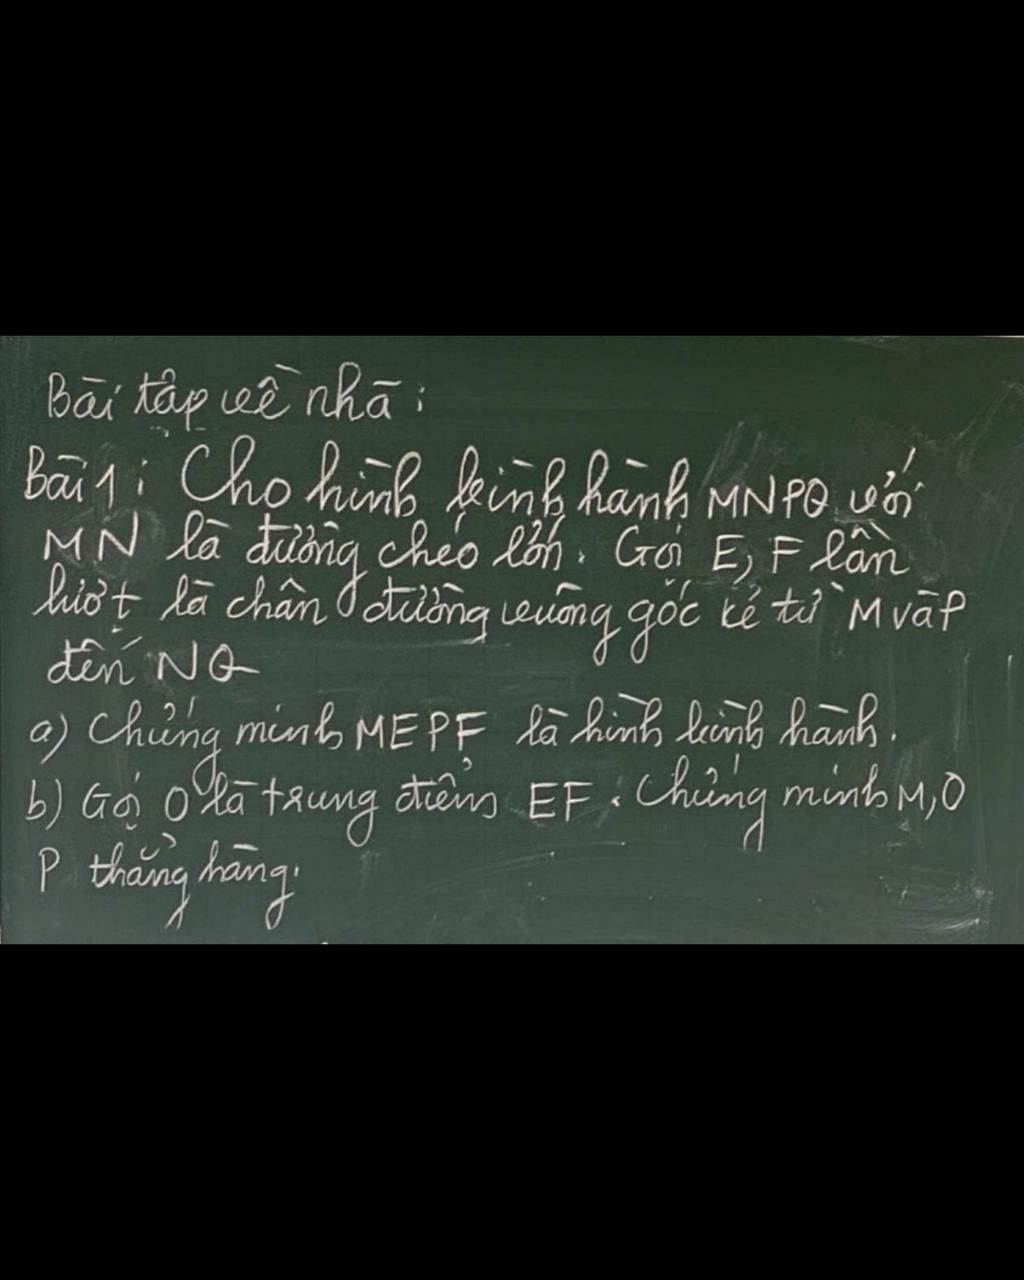 Bài tập về nhà:
Bài 1: Cho hình bình hành MNPQ với
MN là đường chéo lớn. Gọi E, F lần
lượt là chân đường vuông góc kẻ từ M và P
đến NQ
a) Chứng minh MEPF là hình bình hành.
b) Gọi O là trung điểm EF. Chứng minh M, O
P thẳng hàng.